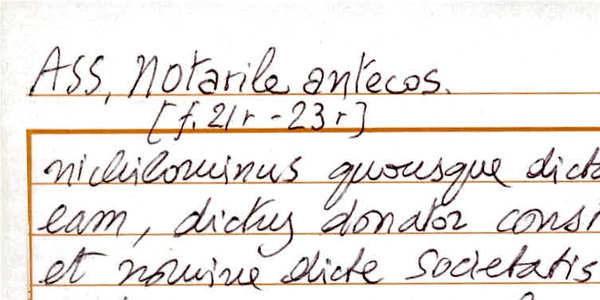 ASS, Notarile antecos.
[f. 21r - 23r]
nichilominus quousque dicta
eam, dictus donator consi
et nomine dicte societatis